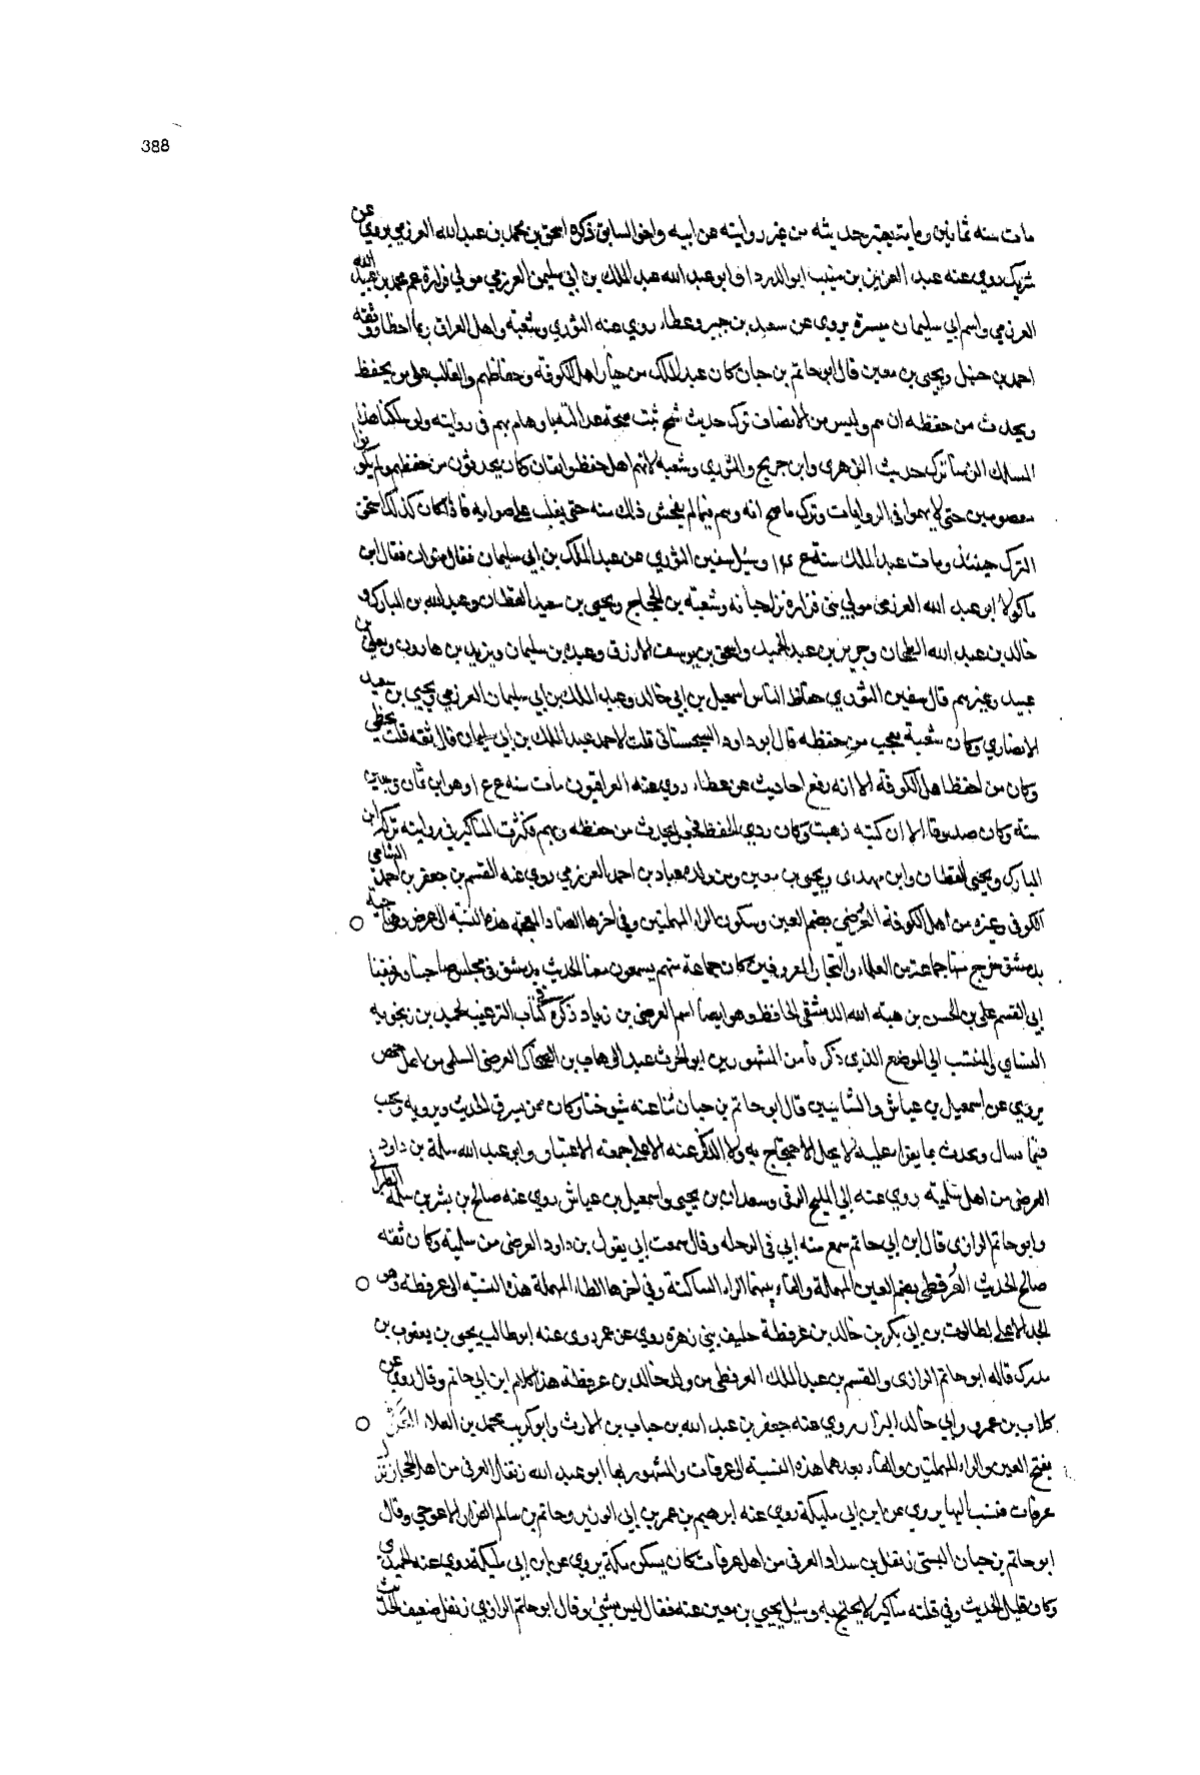 388
مات سنه ثمانين ومايه يعتبر حديثه من غير روايته عن ابيه واخو السابق ذكره اسحق بن محمد بن عبدالله العرزمي يروي عن
شريك روي عنه عبد العزيز بن منيب ابو الدرداء وابو عبد الله عبد الملك بن ابي سليمن العرزمي مولي فزارة عم محمد بن عبيد الله
العرزمي واسم ابي سليمان ميسرة يروي عن سعيد بن جبير وعطاء روي عنه الثوري وشعبة واهل العراق ربما اخطا وثقه
احمد بن حنبل ويحيى بن معين قال ابو حاتم بن حبان كان عبد الملك من خيار اهل الكوفة وحفاظهم والغالب على من يحفظ
ويحدث من حفظه ان يهم وليس من الانصاف ترك حديث شيخ ثبت صحت عدالته باوهام يهم في روايته ولو سلكنا هذا
المسلك لزمنا ترك حديث الزهرى وابن جريج والثوري وشعبة لانهم اهل حفظ واتقان كانوا يحدثون من حفظهم ولم يكونوا
معصومين حتى لا يهموا في الروايات وترك ما صح انه وهم فيما لم يفحش ذلك منه حتى يغلب على صوابه فاذا كان كذلك استحق
الترك حينئذ ومات عبد الملك سنة ١٤٥ وسئل سفين الثوري عن عبد الملك بن ابي سليمان فقال ميزان فقال ابن
ماكولا ابو عبد الله العرزمي مولي بني فزارة نزل جبانه وشعبة بن الحجاج ويحيى بن سعيد القطان وعبد الله بن المبارك و
خالد بن عبد الله الطحان وجرير بن عبد الحميد واسحق بن يوسف الازرق وعبدة بن سليمان ويزيد بن هارون ويعلى بن
عبيد وغيرهم قال سفين الثوري حفاظ الناس اسمعيل بن ابي خالد وعبد الملك بن ابي سليمان العرزمي ويحيى بن سعيد
الانصاري وكان شعبة يعجب من حفظه قال ابو داود السجستاني قلت لاحمد عبد الملك بن ابي سليمان قال ثقه قلت يخطي
وكان من احفظ اهل الكوفة الا انه رفع احاديث عن عطاء روي عنه العراقيون مات سنه
سنة وكان صدوقا الا ان كتبه ذهبت وكان ردي الحفظ فجعل يحدث من حفظه ويهم فكثرت المناكير في روايته تركه ابن
المبارك ويحيى القطان وابن مهدى ويحيى بن معين ومن ولده عباد بن احمد العرزمي روي عنه القسم بن جعفر بن احمد الشامي
الكوفي وغيره من اهل الكوفة العُرْضي بضم العين وسكون الراء المهملتين وفي اخرها الضاد المعجمة هذه النسبة الى عرض وهي ناحية
بدمشق خرج منها جماعة من العلماء والتجار المعروفين كان جماعة منهم يسمعون معنا الحديث بدمشق في مجلس صاحبنا ورفيقنا
ابي القسم على بن الحسن بن هبة الله الدمشقى الحافظ وهو ايضا اسم العرضى بن زياد ذكره في كتاب الترغيب لحميد بن زنجويه
النساي والمنتسب الي الموضع الذي ذكرنا من المشهورين ابو الحرث عبد الوهاب بن الضحاك العرضى السلمى من اهل حمص
يروي عن اسمعيل بن عياش والشاميين قال ابو حاتم بن حبان ثنا عنه شيوخنا وكان ممن يسرق الحديث ويرويه ويجيب
فيما يسال ويحدث بما يقرا عليه لا يحل الاحتجاج به ولا الذكر عنه الا على جهة الاعتبار وابو عبد الله سلمة بن داود
العرضى من اهل سلمية روي عنه ابي المليح الرقى وسعدان بن يحيى واسمعيل بن عياش روي عنه صالح بن بشر بن سلمة الطبراني
وابو حاتم الرازى قال ابن ابي حاتم سمع منه ابي في الرحلة وقال سمعت ابي يقول بن داود العرضى من سلمية وكان ثقه
صالح الحديث العُرفُطى بضم العين المهملة والفاء بينهما الراء الساكنة وفي اخرها الطاء المهملة هذه النسبة الى عرفطة وهو
الجد الاعلى لطالوت بن ابي بكر بن خالد بن عرفطة حليف بني زهرة روي عن عمر روى عنه ابو طالب يحيى بن يعقوب بن
مدرك قاله ابو حاتم الرازى والقسم بن عبد الملك العرفطى من ولد خالد بن عرفطة هذا كلام ابن ابي حاتم وقال روي عن
كلاب بن عمرو وابي خالد البزار روي عنه جعفر بن عبد الله بن حباب بن الارث وابو كريب محمد بن العلاء العَرَفى
بفتح العين والراء المهملتين والفاء بعدهما هذه النسبة الى عرفات والمشهور بها ابو عبد الله زنفل العرفى من اهل الحجاز نزل
عرفات فنسب اليها يروي عن ابن ابي مليكة روي عنه ابرهيم بن عمر بن ابي الوزير وحاتم بن سالم القزاز الاعوجي وقال
ابو حاتم بن حبان البستى زنفل بن سداد العرفى من اهل عرفات كان يسكن مكة يروي عن ابن ابي مليكة روي عنه الحميدي
وكان قليل الحديث وفي قلته مناكير لا يحتج به وسئل يحيى بن معين عنه فقال ليس بشئ وقال ابو حاتم الرازي زنفل ضعيف الحديث